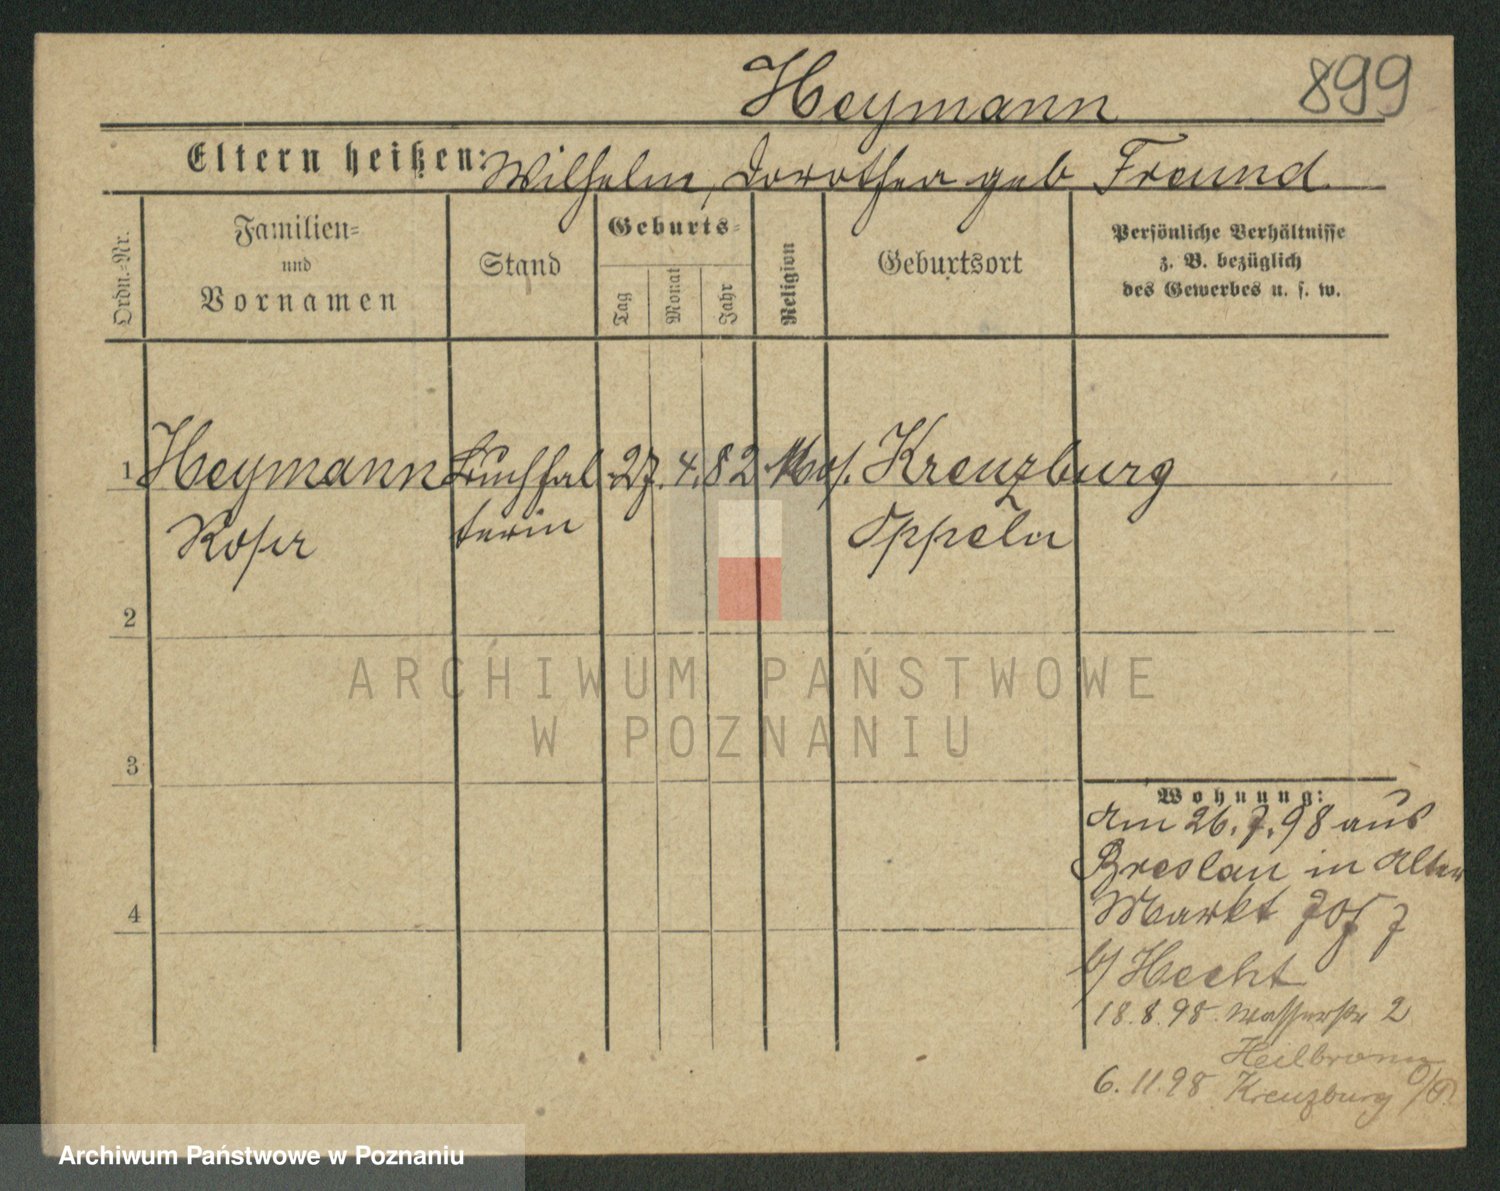 Heymann
899
Eltern heißen: Wilhelm, Dorothea geb Freund
Ordn.-Nr.
Familien-
und
Vornamen
Stand
Geburts-
Tag
Monat
Jahr
Religion
Geburtsort
Persönliche Verhältnisse
z. B. bezüglich
des Gewerbes u. s. w.
1 Heymann Buchhal 27. 4. 82 Mos. Kreuzburg
Rosa terin Oppeln
2
3
4
Wohnung:
Am 26. 7. 98 aus
Breslau in Alter
Markt
b/ Hecht
18. 8. 98. Wasserstr 2
Heilbronn
6. 11. 98 Kreuzburg O/S.
ARCHIWUM PAŃSTWOWE
W POZNANIU
Archiwum Państwowe w Poznaniu